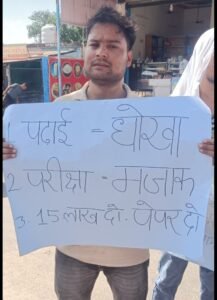 1 पढ़ाई = धोखा
2 परीक्षा - मजाक
3. 15 लाख दो. पेपर दो